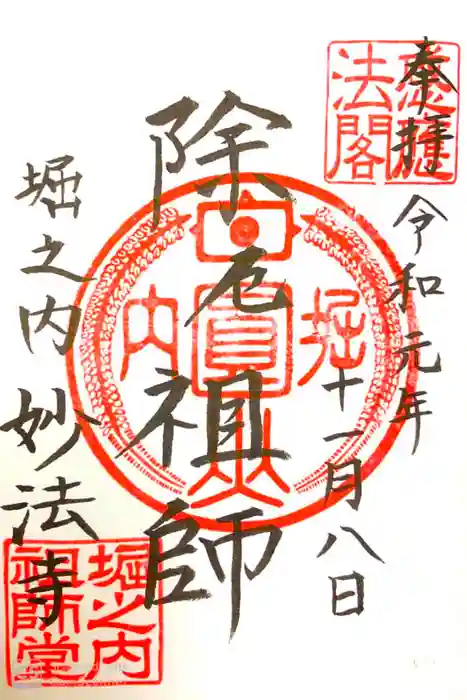 奉拝
令和元年
十一月八日
除厄祖師
堀之内妙法寺
法閣
堀
内
堀之内
祖師堂